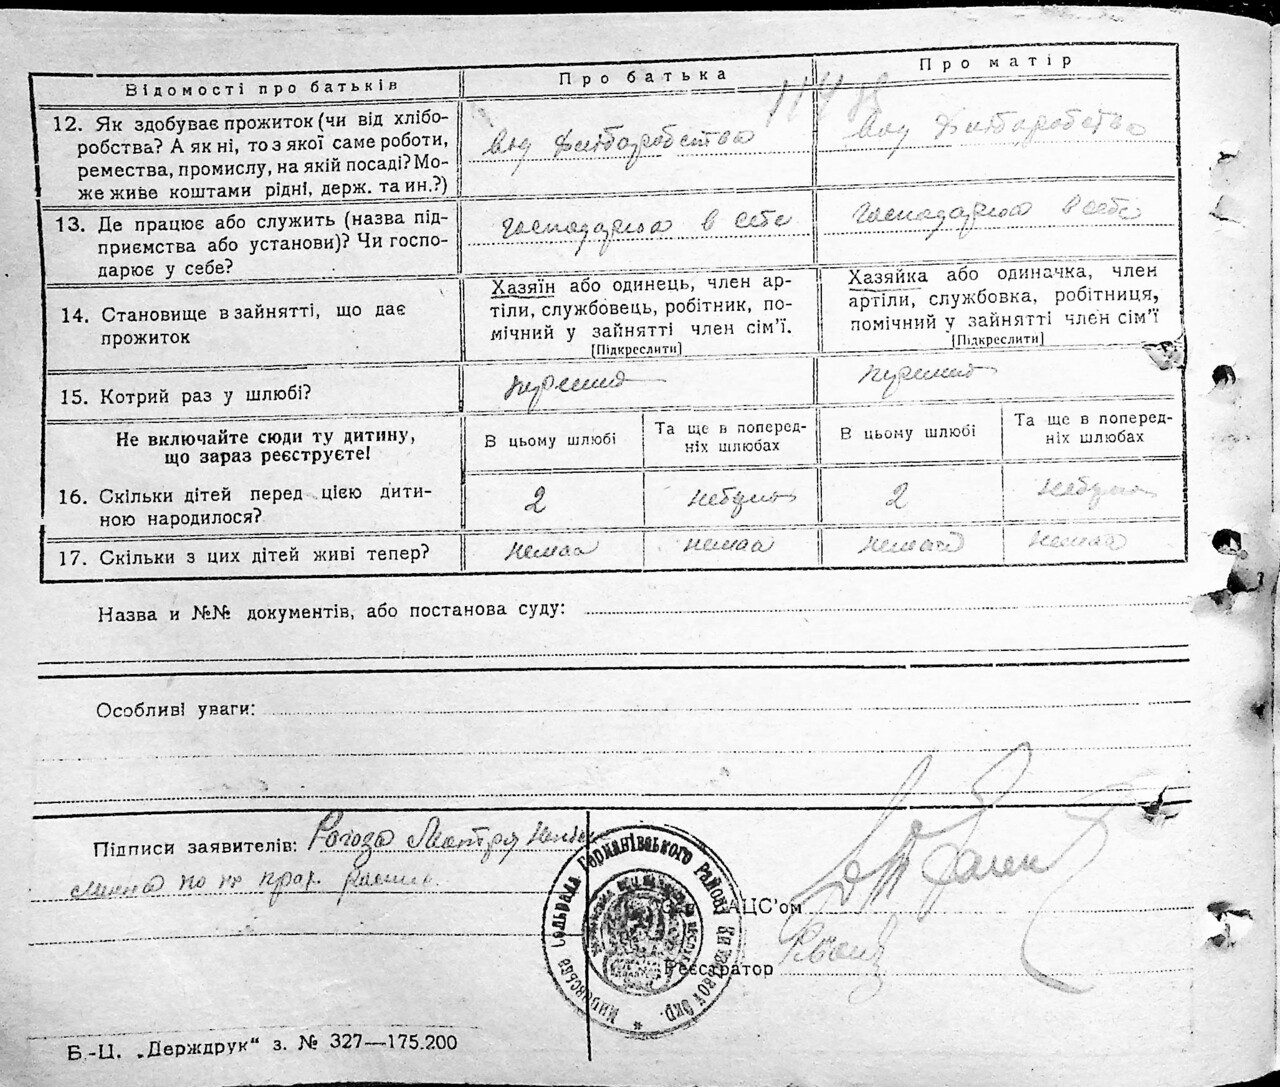 Відомості про батьків
Про батька
Про матір
12. Як здобуває прожиток (чи від хлібо-
робства? А як ні, то з якої саме роботи,
ремества, промислу, на якій посаді? Мо-
же живе коштами рідні, держ. та ин.?)
від Хліборобства
від Хліборобства
13. Де працює або служить (назва під-
приємства або установи)? Чи госпо-
дарює у себе?
господарює в себе
господарює в себе
14. Становище в зайнятті, що дає
прожиток
Хазяїн або одинець, член ар-
тілі, службовець, робітник, по-
мічний у зайнятті член сім'ї.
[Підкреслити]
Хазяйка або одиначка, член
артілі, службовка, робітниця,
помічний у зайнятті член сім'ї
[Підкреслити]
15. Котрий раз у шлюбі?
перший
перший
Не включайте сюди ту дитину,
що зараз реєструєте!
В цьому шлюбі
Та ще в поперед-
ніх шлюбах
В цьому шлюбі
Та ще в поперед-
ніх шлюбах
16. Скільки дітей перед цією дити-
ною народилося?
2
небуло
2
небуло
17. Скільки з цих дітей живі тепер?
немає
немає
немає
немає
Назва и №№ документів, або постанова суду:
Особливі уваги:
Підписи заявителів: Рогоза
Сільрада Германівського Району
ЗАЦС'ом
Реєстратор
Б.-Ц. „Держдрук“ з. № 327—175.200